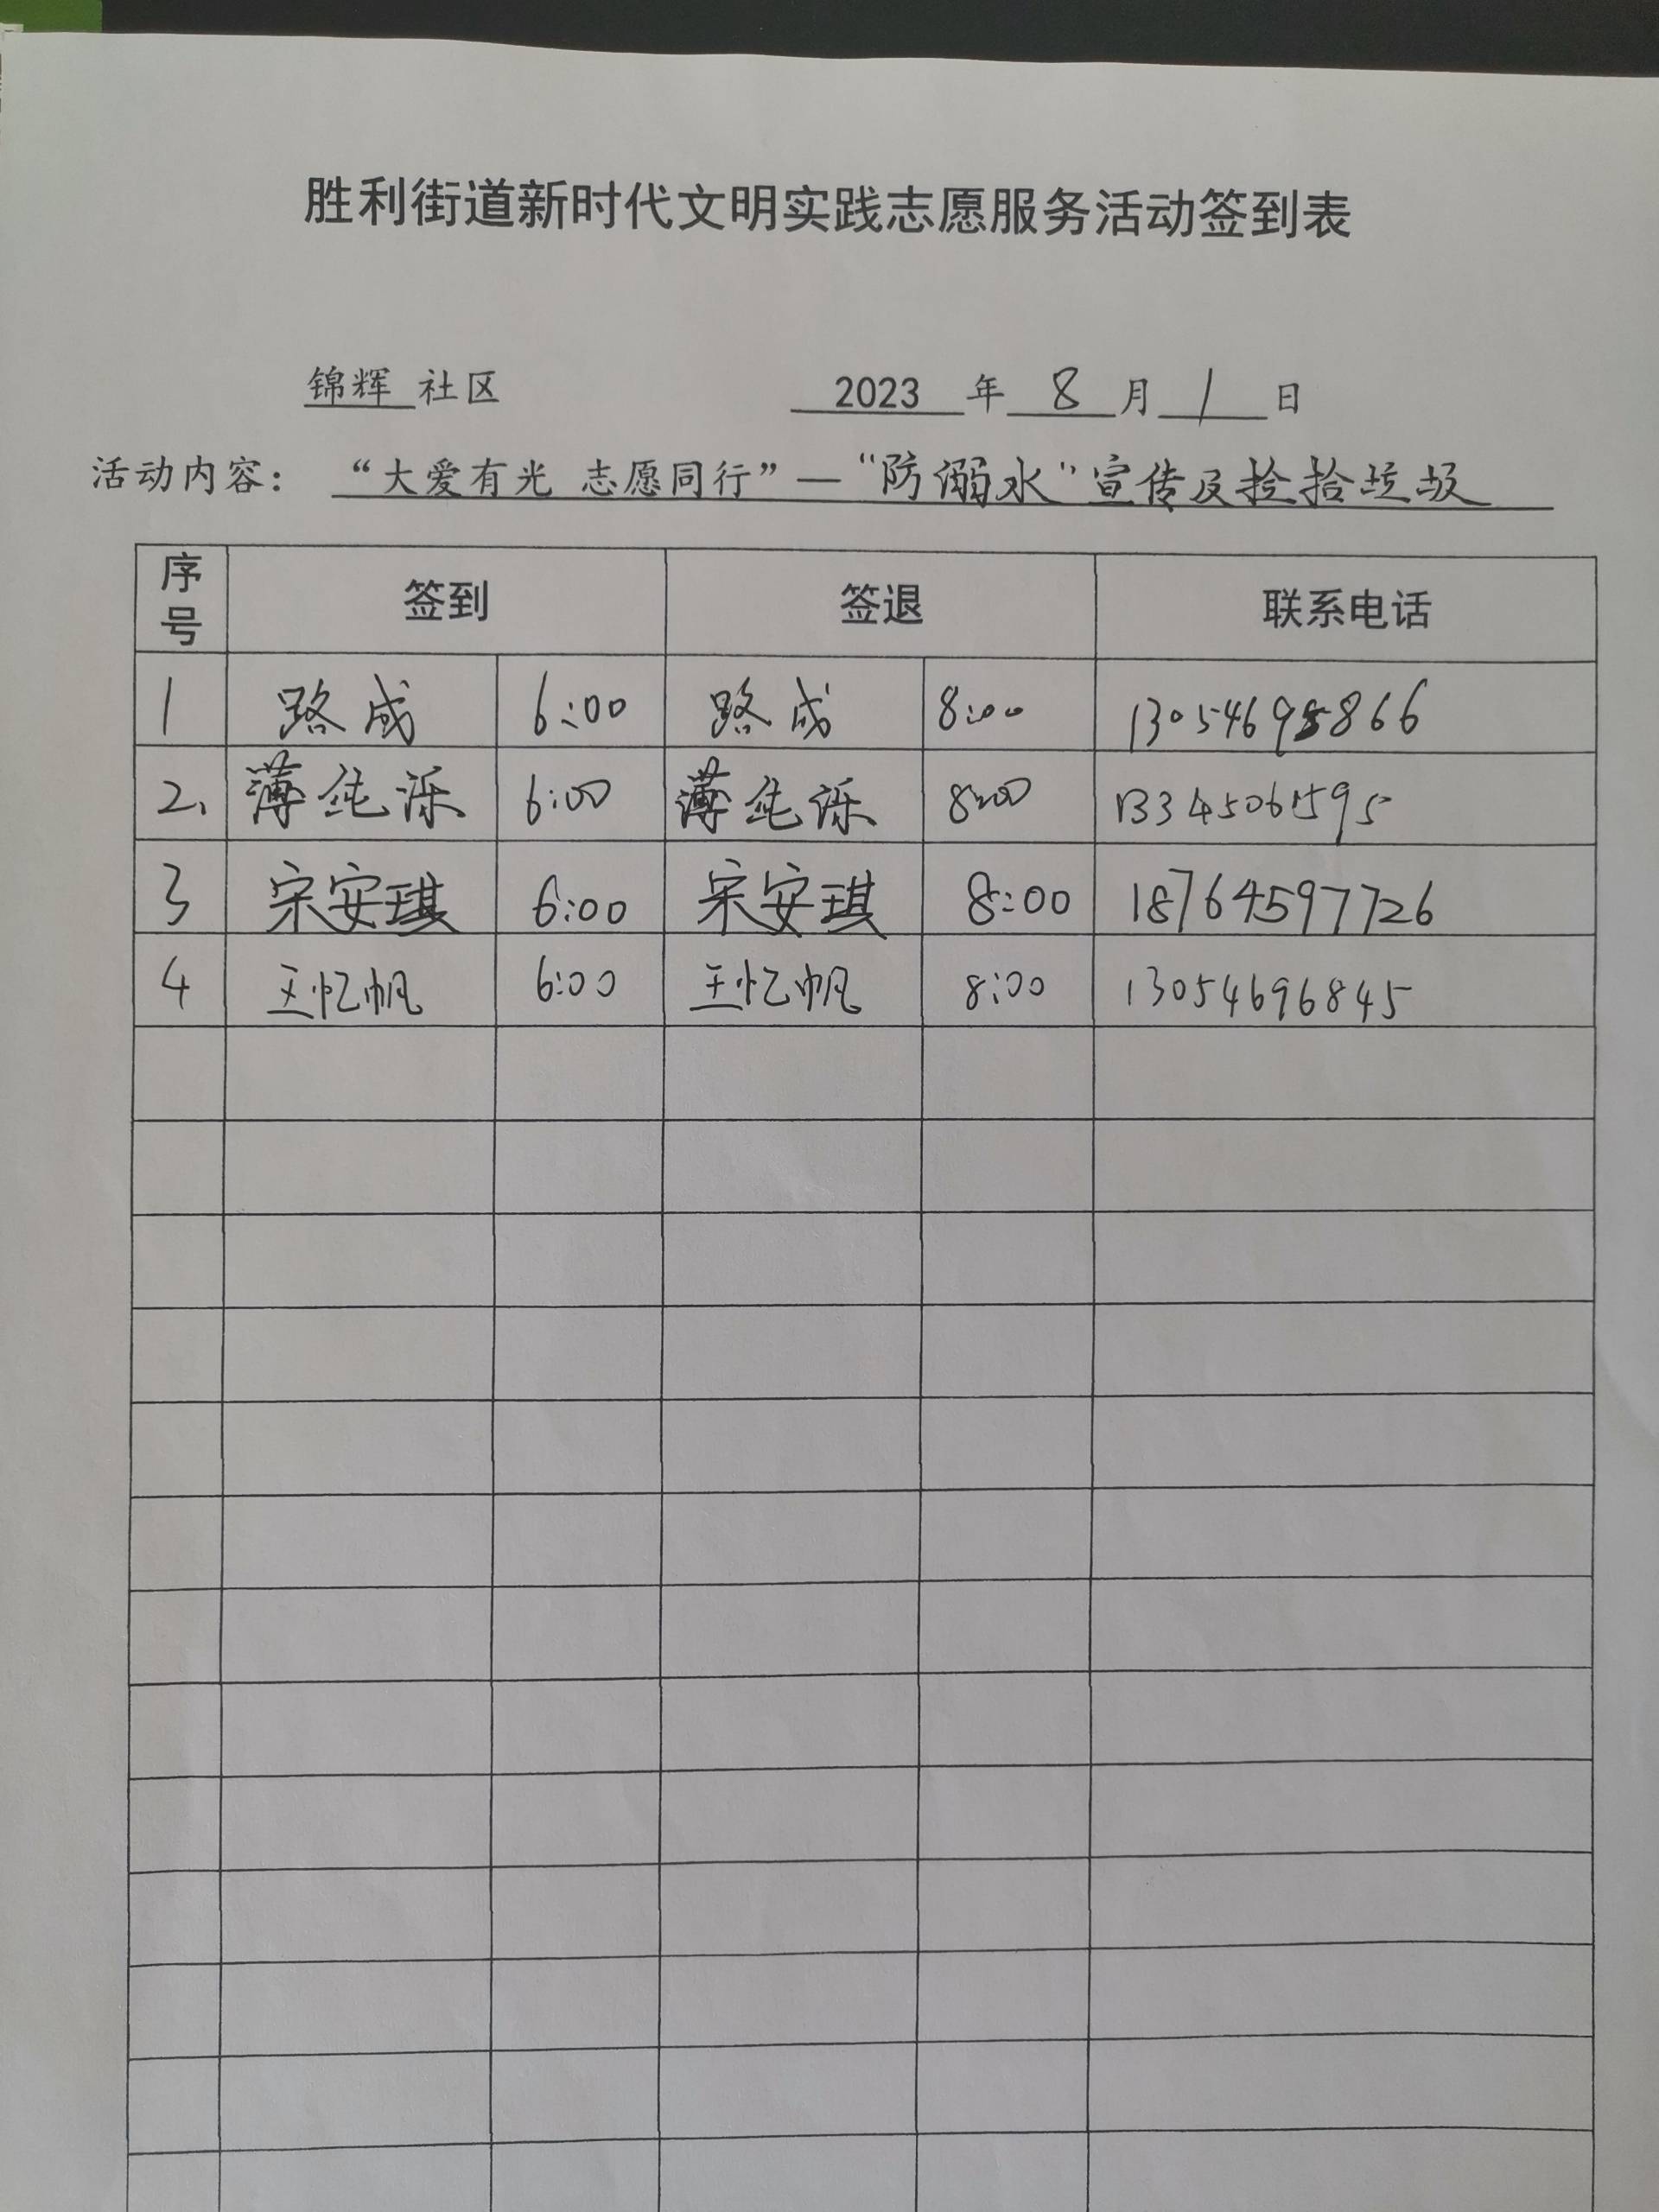 胜利街道新时代文明实践志愿服务活动签到表
锦辉 社区 2023 年 8 月 1 日
活动内容： “大爱有光 志愿同行”—“防溺水”宣传及捡拾垃圾
序号 签到 签退 联系电话
1 路成 6:00 路成 8:00 13054695866
2、 薄纯泺 6:00 薄纯泺 8:00 13345061595
3 宋安琪 6:00 宋安琪 8:00 18764597726
4 王忆帆 6:00 王忆帆 8:00 13054696845